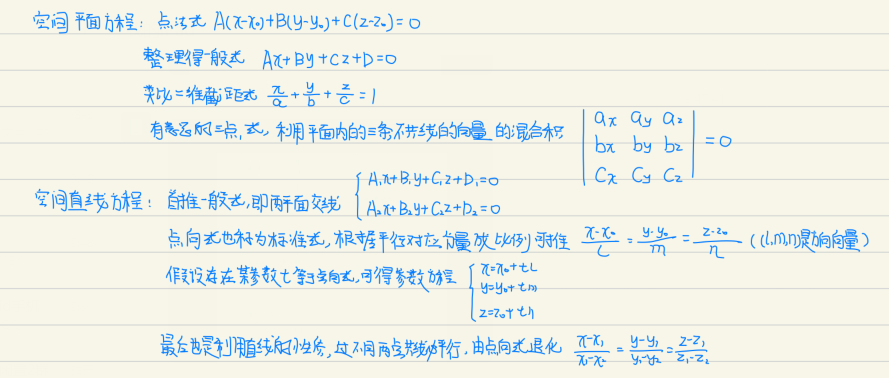 空间平面方程：点法式 A(x-x₀)+B(y-y₀)+C(z-z₀)=0
整理得一般式 Ax+By+Cz+D=0
类比二维截距式 x/a + y/b + z/c = 1
有意思的三点式，利用平面内的三条不共线的向量的混合积 |ax ay az; bx by bz; cx cy cz| = 0
空间直线方程：首推一般式，即两平面交线 { A₁x+B₁y+C₁z+D₁=0; A₂x+B₂y+C₂z+D₂=0
点向式也称为标准式，根据平行对应向量成比例可推 (x-x₀)/l = (y-y₀)/m = (z-z₀)/n (l,m,n)是方向向量)
假设存在某参数t等于点向式，可得参数方程 { x=x₀+tl; y=y₀+tm; z=z₀+tn
最后也是利用直线的性质，过不同两点共线必平行，由点向式退化 (x-x₁)/(x₁-x₂) = (y-y₁)/(y₁-y₂) = (z-z₁)/(z₁-z₂)